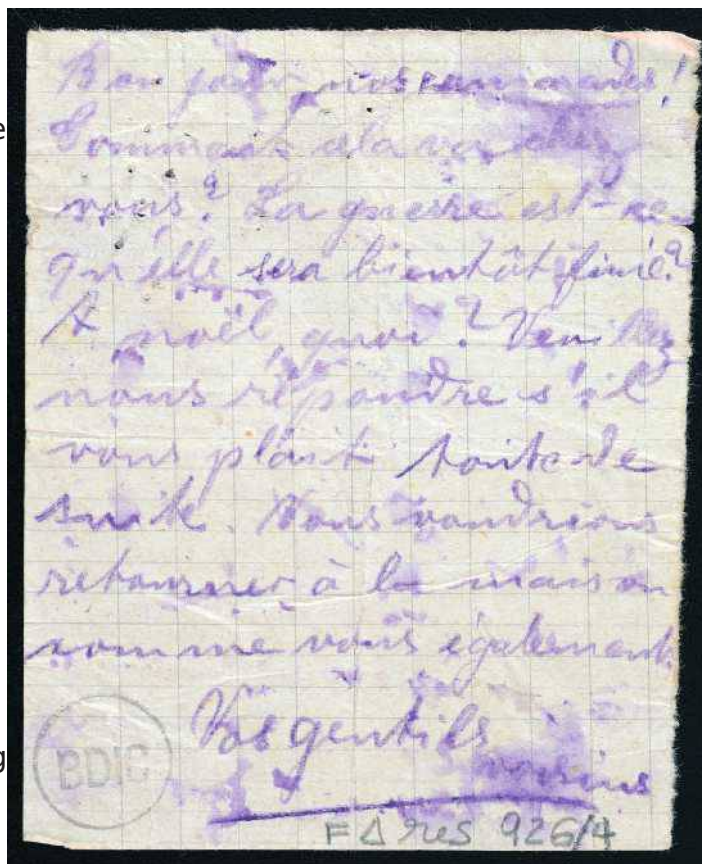 Bon jour, nos camarades!
Comment cela va chez
vous? La guerre est-ce
qu'elle sera bientôt finie?
A noël, quoi? Veuillez
nous répondre s'il
vous plait toute de
suite. Nous voudrions
retourner à la maison
comme vous également.
Vos gentils
voisins
BDIC
F Δ res 926/4
e
g